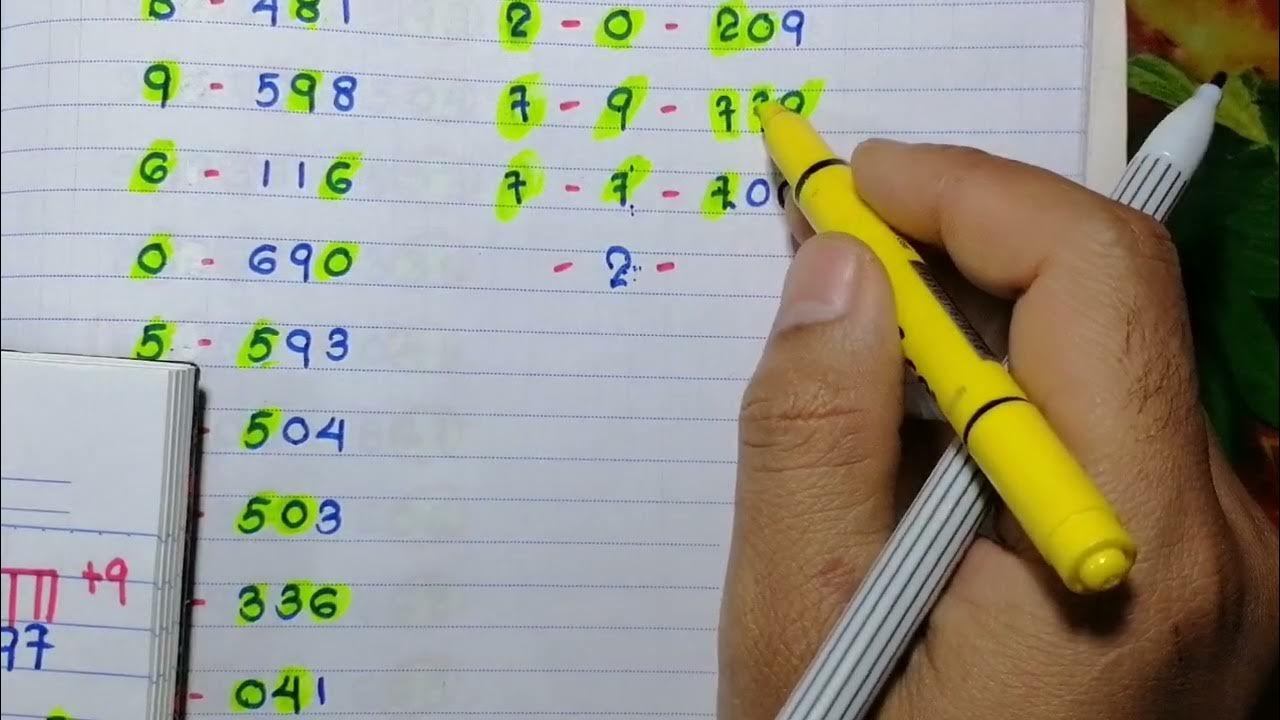 8 - 481
9 - 598
6 - 116
0 - 690
5 - 593
- 504
- 503
- 336
- 041
2 - 0 - 209
7 - 9 -
7 - 7 - 70
- 2 -
+9
77